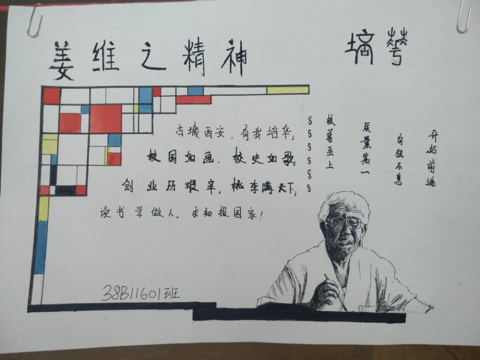 姜维之精神
培華
古城西安，有我培华，
校园如画，校史如歌，
创业历艰辛，桃李满天下，
读书学做人，求知报国家！
校誉至上
质量第一
自强不息
开拓前进
38B11601班